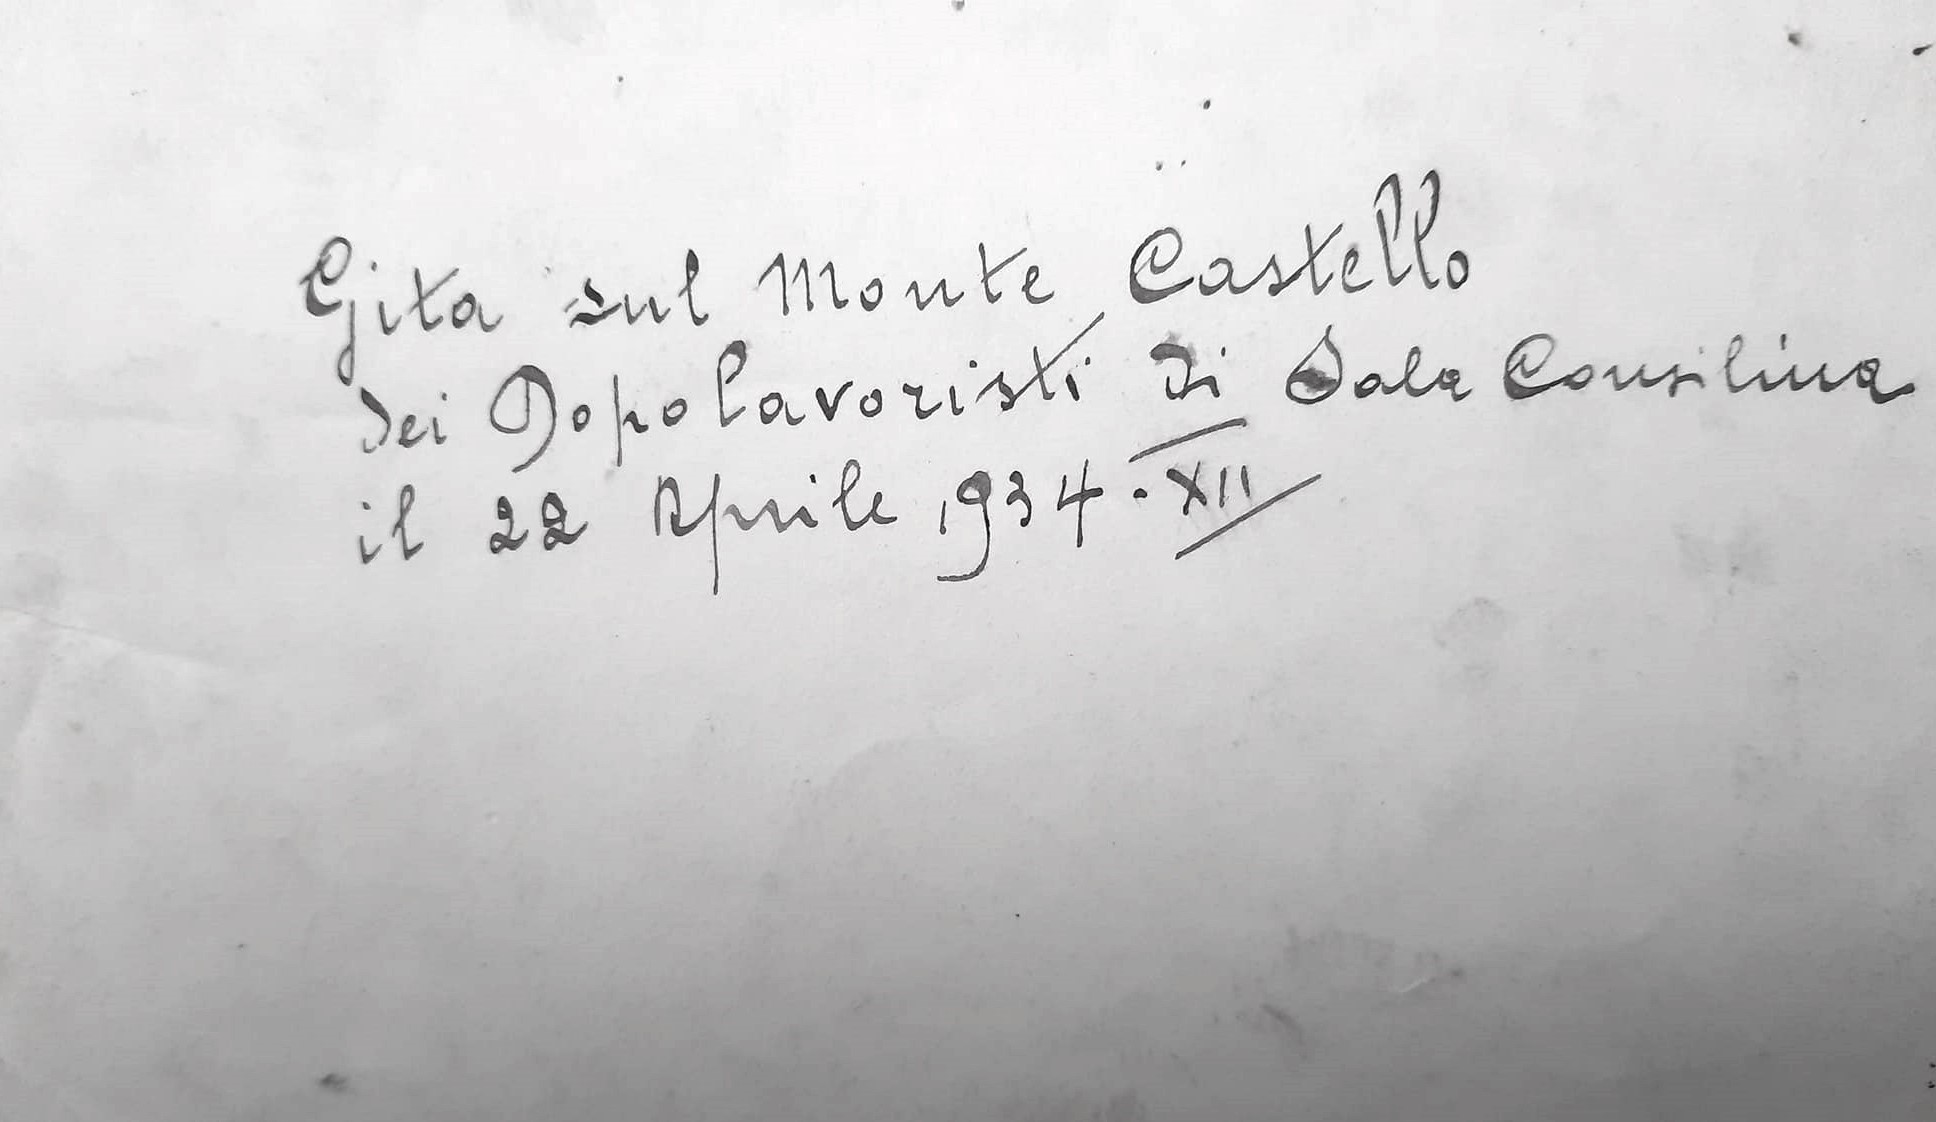 Gita sul Monte Castello
dei Dopolavoristi di Sala Consilina
il 22 Aprile 1934 · XII